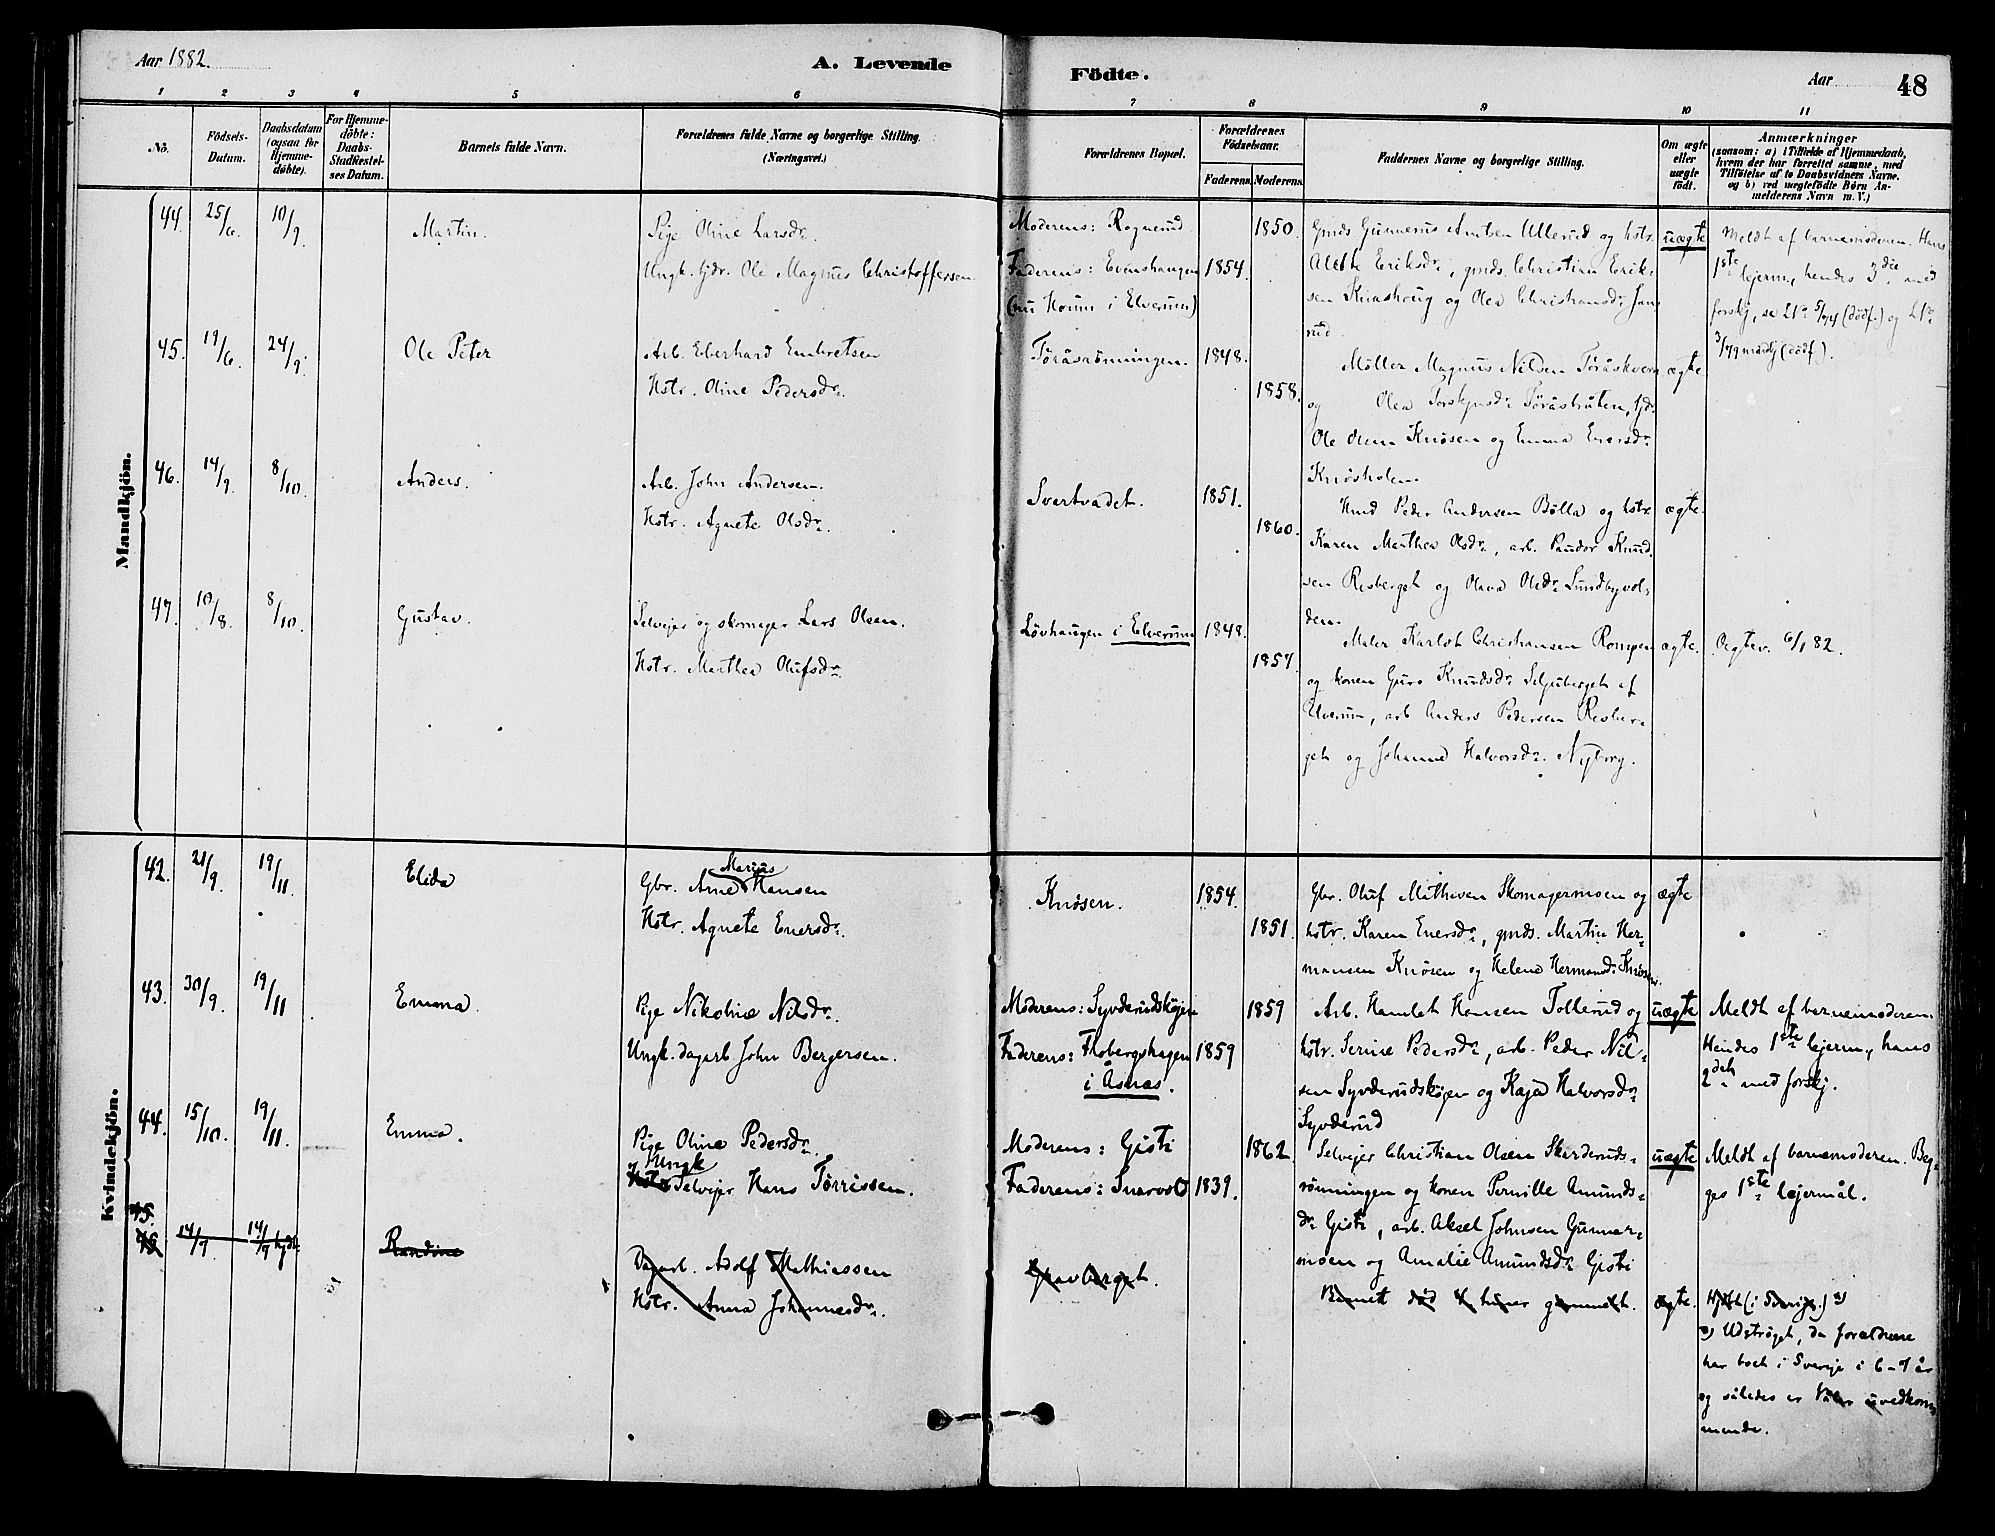 Aar 1882.
A. Levende
Födte.
Aar
48
1 2 3 4 5 6 7 8 9 10 11
No.
Födsels-
Datum.
Daabsdatum
(ogsaa for
Hjemme-
døbte).
For Hjemme-
døbte:
Daabs-
Stadfæstel-
ses Datum.
Barnets fulde Navn.
Forældrenes fulde Navne og borgerlige Stilling.
(Næringsvei.)
Forældrenes Bopæl.
Forældrenes
Födselsaar.
Faderens. Moderens.
Faddernes Navne og borgerlige Stilling.
Om ægte
eller
uægte
födt.
Anmærkninger
(saasom: a) i Tilfælde af Hjemmedaab,
hvem der har forrettet samme, med
Tilföielse af to Daabsvidners Navne.
og b) ved uægtefödte Börn An-
melderens Navn m. V.)
Mandkjön.
44. 25/6. 10/9. Martin.
Pige Oline Larsdr.
Ungk. tjdr. Ole Magnus Christoffersen
Moderens: Rognerud
Faderens: Evenshaugen
(nu Houm i Elverum)
1854. 1850.
Gmd. Gunnerus Arntsen Ullerud og hstr.
Alette Eriksdr., gmds. Christian Erik-
sen Knashoug og Olea Christiansdr. Jan-
rud.
uægte
Meldt af barnemoderen. Hans
1ste lejerm., hendes 3die med
forskj, se L1a 5/74 (dødf.) og L1a
3/79 mandkj (dødf.).
45. 19/6. 24/9. Ole Peter
Arb. Eberhard Embretsen
Hstr. Oline Pedersdr.
Töråsrönningen.
1848. 1858.
Møller Magnus Nilsen Töråskvern
og Olea Torkjeldsdr. Töråshüten, tjdr.
Ole Olsen Knösen og Emma Enersdr.
Knösholen.
ægte
46. 14/9. 8/10. Anders.
Arb. John Andersen.
Hstr. Agnete Olsdr.
Svartvadet.
1851. 1860.
Hmd Peder Andersen Bölla og hstr.
Karen Marthea Olsdr., arb. Knud-
sen Risberget og Olava Olsdr. Sundbyvol-
den.
ægte.
47. 10/8. 8/10. Gustav.
Selvejer og skomager Lars Olsen.
Hstr. Marthea Olufsdr.
Lövhaugen i Elverum
1848. 1857.
Maler Karlot Christiansen Rompen
og konen Guro Knudsdr. Seljuberget af
Elverum, arb Anders Pedersen Risber-
get og Johanne Halvorsdr. Nyborg.
ægte. Ægtev. 6/1 82.
Kvindekjön.
42. 21/9. 19/11. Elida
Gbr. Arne Marius Hansen
Hstr. Agnete Enersdr.
Knösen.
1854. 1851.
Gbr. Oluf Mathisen Skomagermoen og
hstr. Karen Enersdr., gmds. Martin Her-
mansen Knösen og Helene Hermansdr. Knösen.
ægte
43. 30/9. 19/11 Emma
Pige Nikoline Nilsdr.
Ungk. dagarb John Bergersen.
Moderens: Syvderudskojen
Faderens: Flobergshagen
i Åsnæs.
1859 1859
Arb. Hamlet Hansen Tollerud og
hstr. Serine Pedersdr., arb. Peder Nil-
sen Syvderudskojen og Kaja Halvorsdr.
Syvderud
uægte
Meldt af barnemoderen.
Hendes 1ste lejerm., hans
2det med forskj.
44. 15/10. 19/11. Emma.
Pige Oline Pedersdr.
og Ungk
Selvejer Hans Törrissen.
Moderens: Gisti
Faderens: Snarvold
1839. 1862.
Selvejer Christian Olsen Skarderuds-
rönningen og konen Pernille Amunds-
dr. Gisti, arb. Aksel Johnsen Gunner-
moen og Amalie Amundsdr. Gisti
uægte
Meldt af barnemoderen. Beg-
ges 1ste lejermål.
45. 14/9. 14/9 hjdt. Randine
Dagarb. Adolf Mathiassen
Hstr. Anna Johannesdr.
Gravberget.
Barnet død 4 timer gammelt.
ægte.
Hjdbt (i Sverige.) a)
a) Udströget, da forældrene
har boet i Sverige i 6-7 år
og således er Våler uvedkom-
mende.